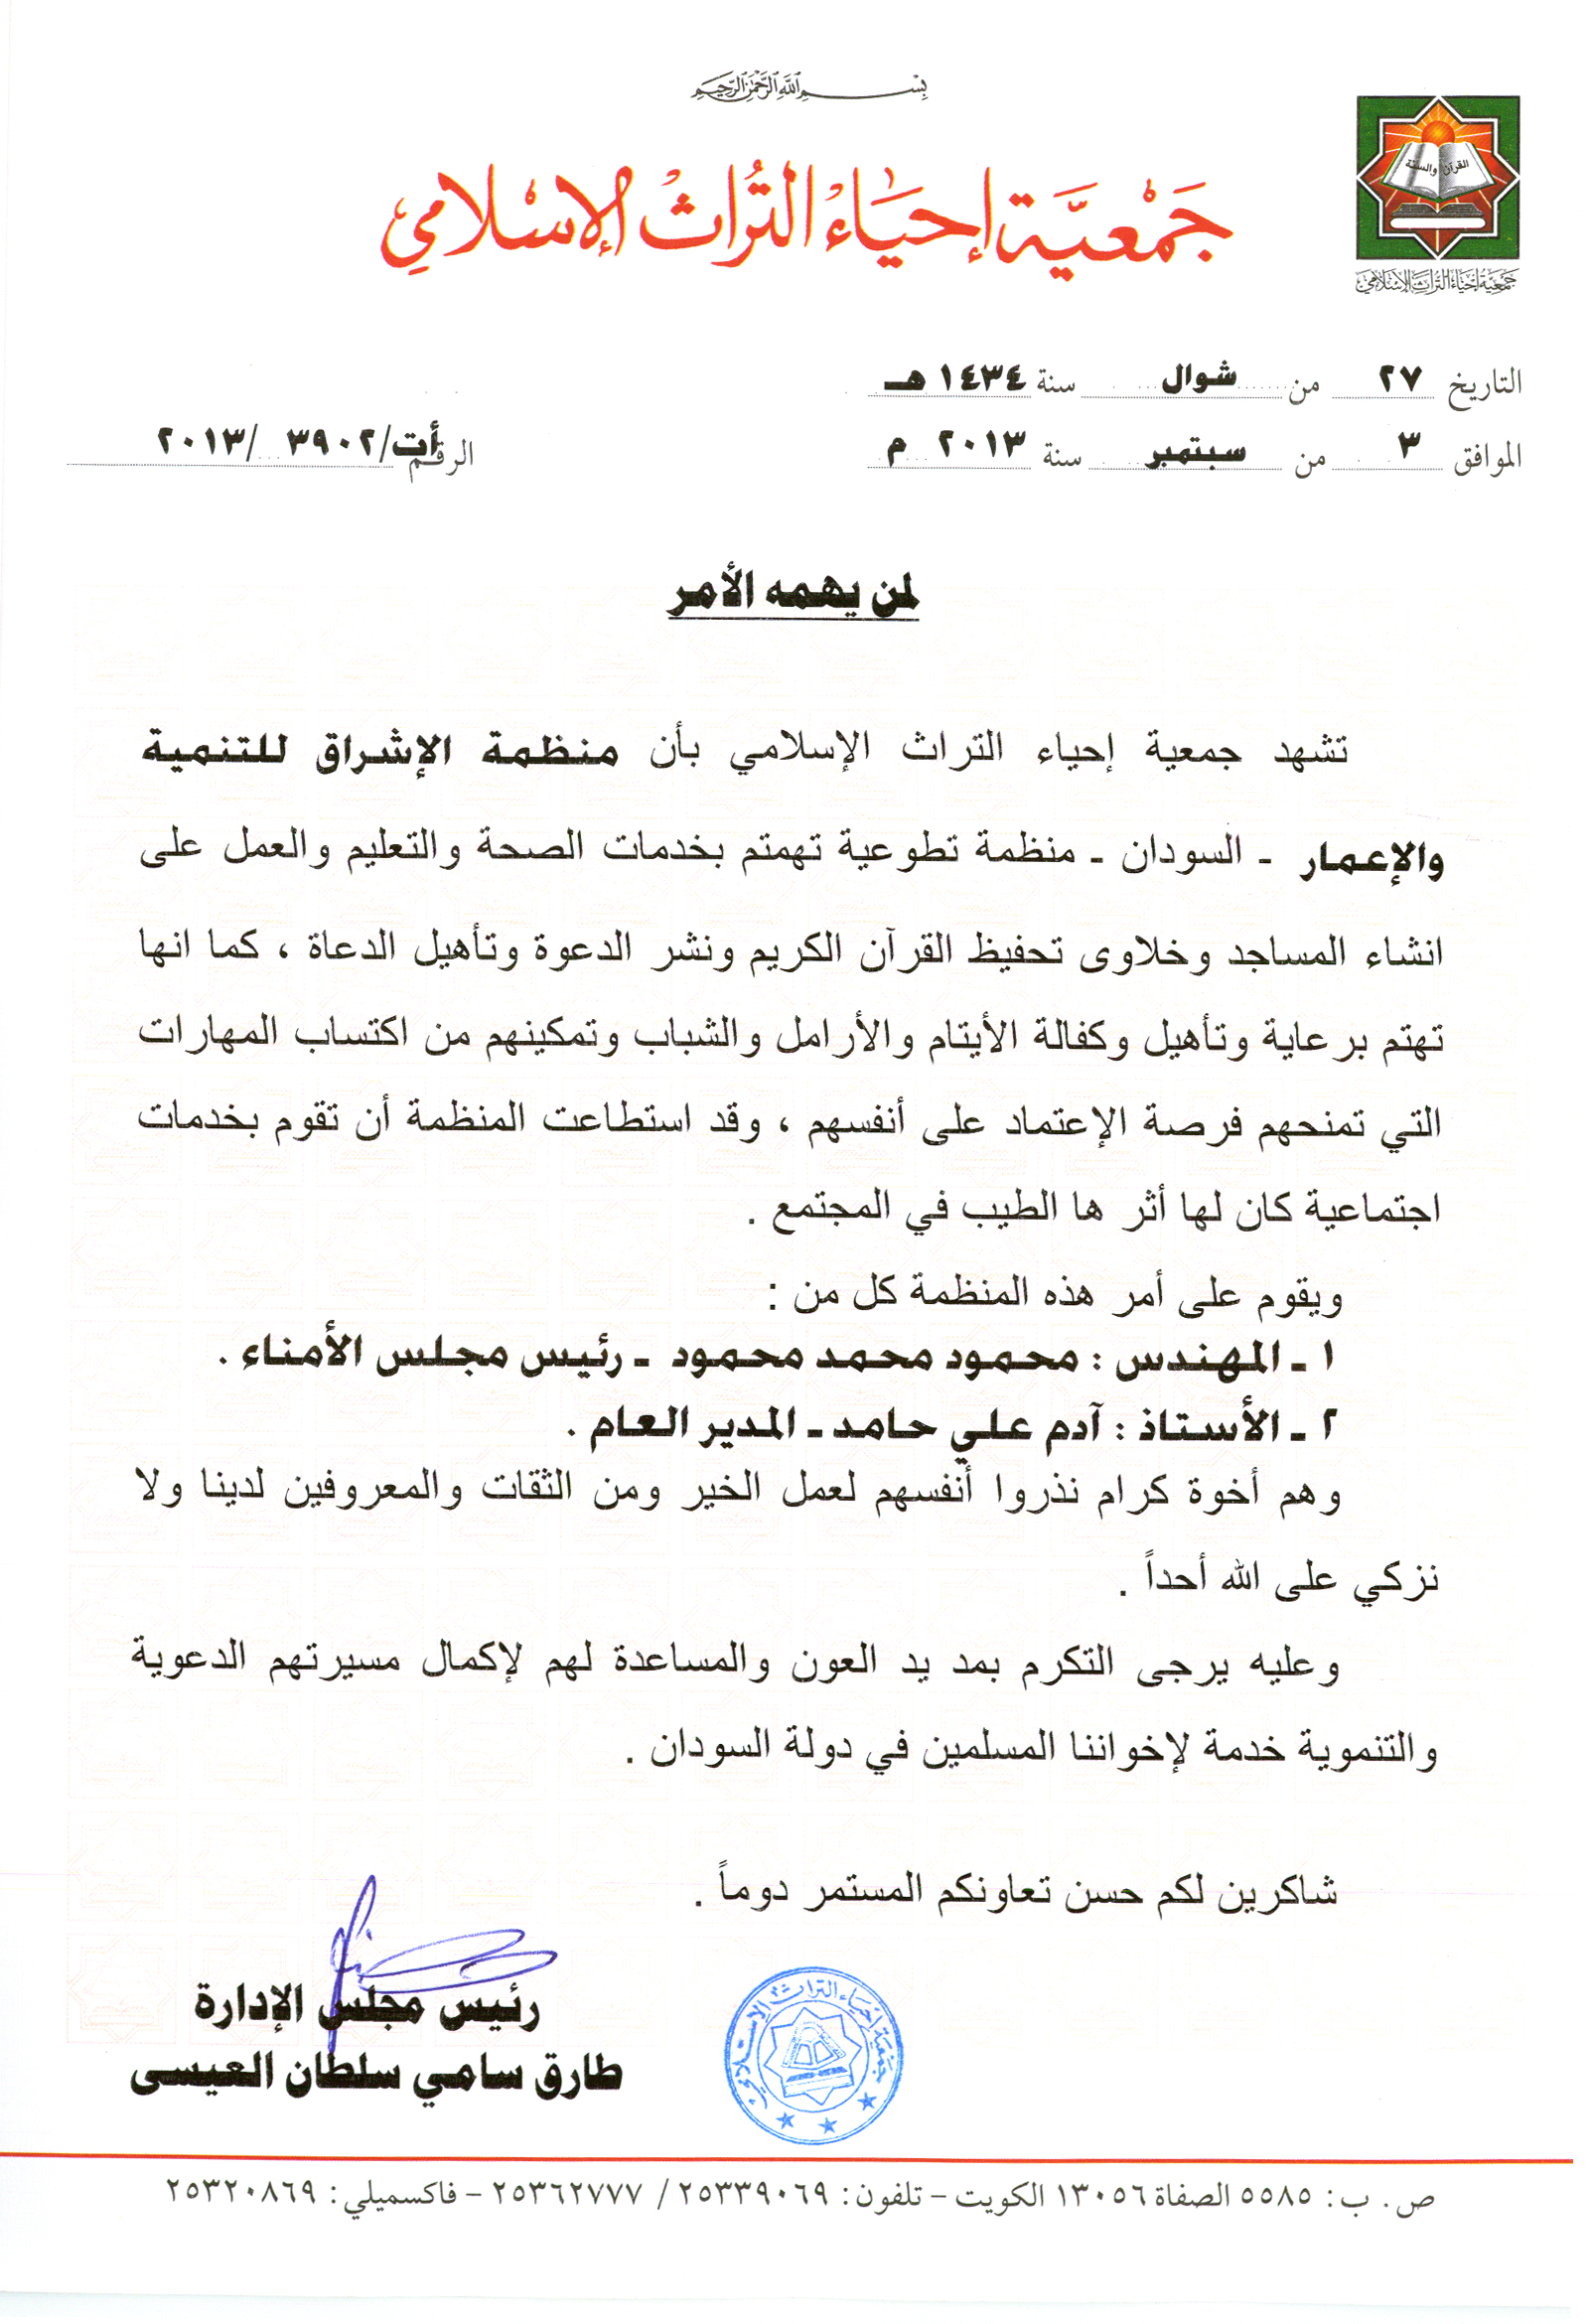 بسم الله الرحمن الرحيم
جمعية إحياء التراث الإسلامي
القرآن والسنة
جمعية إحياء التراث الإسلامي
التاريخ ٢٧ من شوال سنة ١٤٣٤ هـ
الموافق ٣ من سبتمبر سنة ٢٠١٣ م
الرقم أت/٣٩٠٢ /٢٠١٣
لمن يهمه الأمر
تشهد جمعية إحياء التراث الإسلامي بأن منظمة الإشراق للتنمية
والإعمار ـ السودان ـ منظمة تطوعية تهمتم بخدمات الصحة والتعليم والعمل على
انشاء المساجد وخلاوى تحفيظ القرآن الكريم ونشر الدعوة وتأهيل الدعاة ، كما انها
تهتم برعاية وتأهيل وكفالة الأيتام والأرامل والشباب وتمكينهم من اكتساب المهارات
التي تمنحهم فرصة الإعتماد على أنفسهم ، وقد استطاعت المنظمة أن تقوم بخدمات
اجتماعية كان لها أثر ها الطيب في المجتمع .
ويقوم على أمر هذه المنظمة كل من :
١ ـ المهندس : محمود محمد محمود ـ رئيس مجلس الأمناء .
٢ ـ الأستاذ : آدم علي حامد ـ المدير العام .
وهم أخوة كرام نذروا أنفسهم لعمل الخير ومن الثقات والمعروفين لدينا ولا
نزكي على الله أحداً .
وعليه يرجى التكرم بمد يد العون والمساعدة لهم لإكمال مسيرتهم الدعوية
والتنموية خدمة لإخواننا المسلمين في دولة السودان .
شاكرين لكم حسن تعاونكم المستمر دوماً .
رئيس مجلس الإدارة
طارق سامي سلطان العيسى
جمعية احياء التراث الاسلامي
ص. ب: ٥٥٨٥ الصفاة ١٣٠٥٦ الكويت – تلفون: ٢٥٣٣٩٠٦٩ / ٢٥٣٦٢٧٧٧ – فاكسميلي: ٢٥٣٢٠٨٦٩